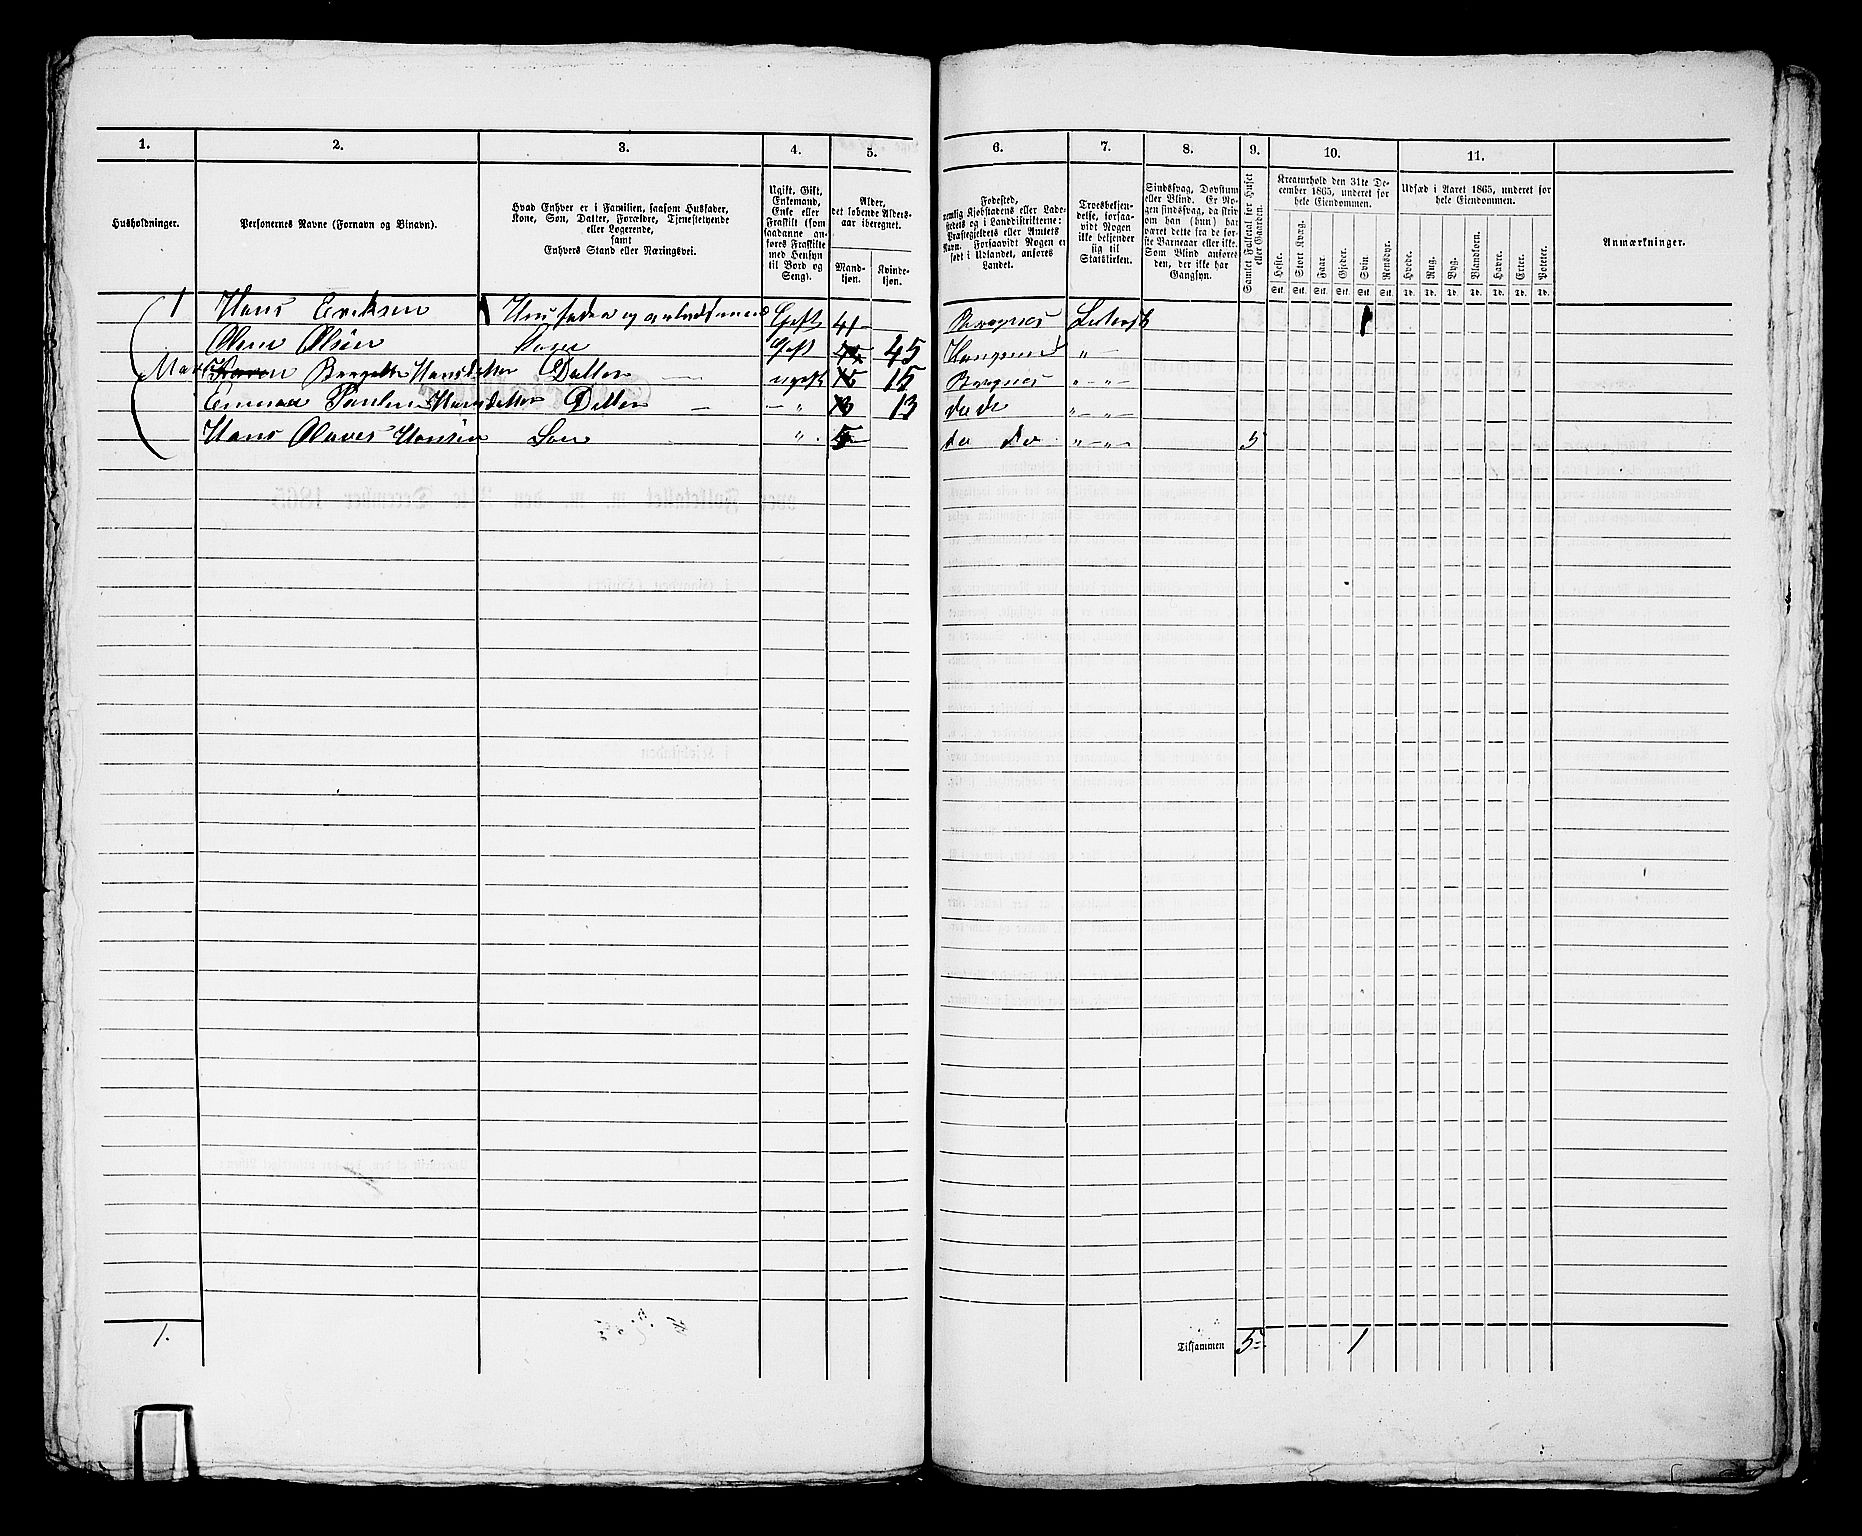 1. 2. 3. 4. 5. 6. 7. 8. 9. 10. 11.
Husholdninger.
Personernes Navne (Fornavn og Binavn).
Hvad Enhver er i Familien, saasom Husfader,
Kone, Søn, Datter, Forældre, Tjenestetyende
eller Logerende,
samt
Enhvers Stand eller Næringsvei.
Ugift, Gift,
Enkemand,
Enke eller
Fraskilt (som
saadanne an-
føres Fraskilte
med Hensyn
til Bord og
Seng).
Alder,
det løbende Alders-
aar iberegnet.
Mand-
kjøn.
Kvinde-
kjøn.
Fødested,
nemlig Kjøbstadens eller Lade-
stedets og i Landdistrikterne:
Præstegjeldets eller Amtets
Navn. Forsaavidt Nogen er
født i Udlandet, anføres
Landet.
Troesbekjen-
delse, forsaa-
vidt Nogen
ikke bekjender
sig til
Statskirken.
Sindssvag, Døvstum
eller Blind. Er No-
gen sindssvag, da skriv
om han (hun) har
været dette fra de før-
ste Barneaar eller ikke.
Som Blind anføres
den, der ikke har
Gangsyn.
Samlet Folketal for Huset
eller Gaarden.
Kreaturhold den 31te De-
cember 1865, underet for
hele Eiendommen.
Heste. Stort Kvæg. Faar. Gjeder. Svin. Rensdyr.
Stk. Stk. Stk. Stk. Stk. Stk.
Udsæd i Aaret 1865, underet for
hele Eiendommen.
Hvede. Rug. Byg. Blandkorn. Havre. Erter. Poteter.
Td. Td. Td. Td. Td. Td. Td.
Anmærkninger.
1 Hans Eriksen Husfader og Gift 41 Bragnes Luthersk 1
Oline Olsen Kone Gift 45 "
Maren Hansdatter Datter ugift 15 Bragnes " "
Hansdatter Datter " 13 do do " "
Hans Olaves Hansen Søn " 5 do do " " 5
1. Tilsammen 5 1